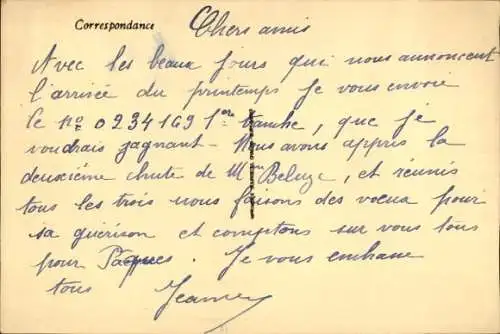 Correspondance
Chers amis
Avec les beaux jours qui nous annoncent
l'arrivée du printemps je vous envoie
le No 0234169 1ère tranche, que je
voudrais gagnant - Nous avons appris la
deuxième chute de Mme Beluze, et réunis
tous les trois nous faisons des voeux pour
sa guérison et comptons sur vous tous
pour Pâques. Je vous embrasse
tous Jeanne